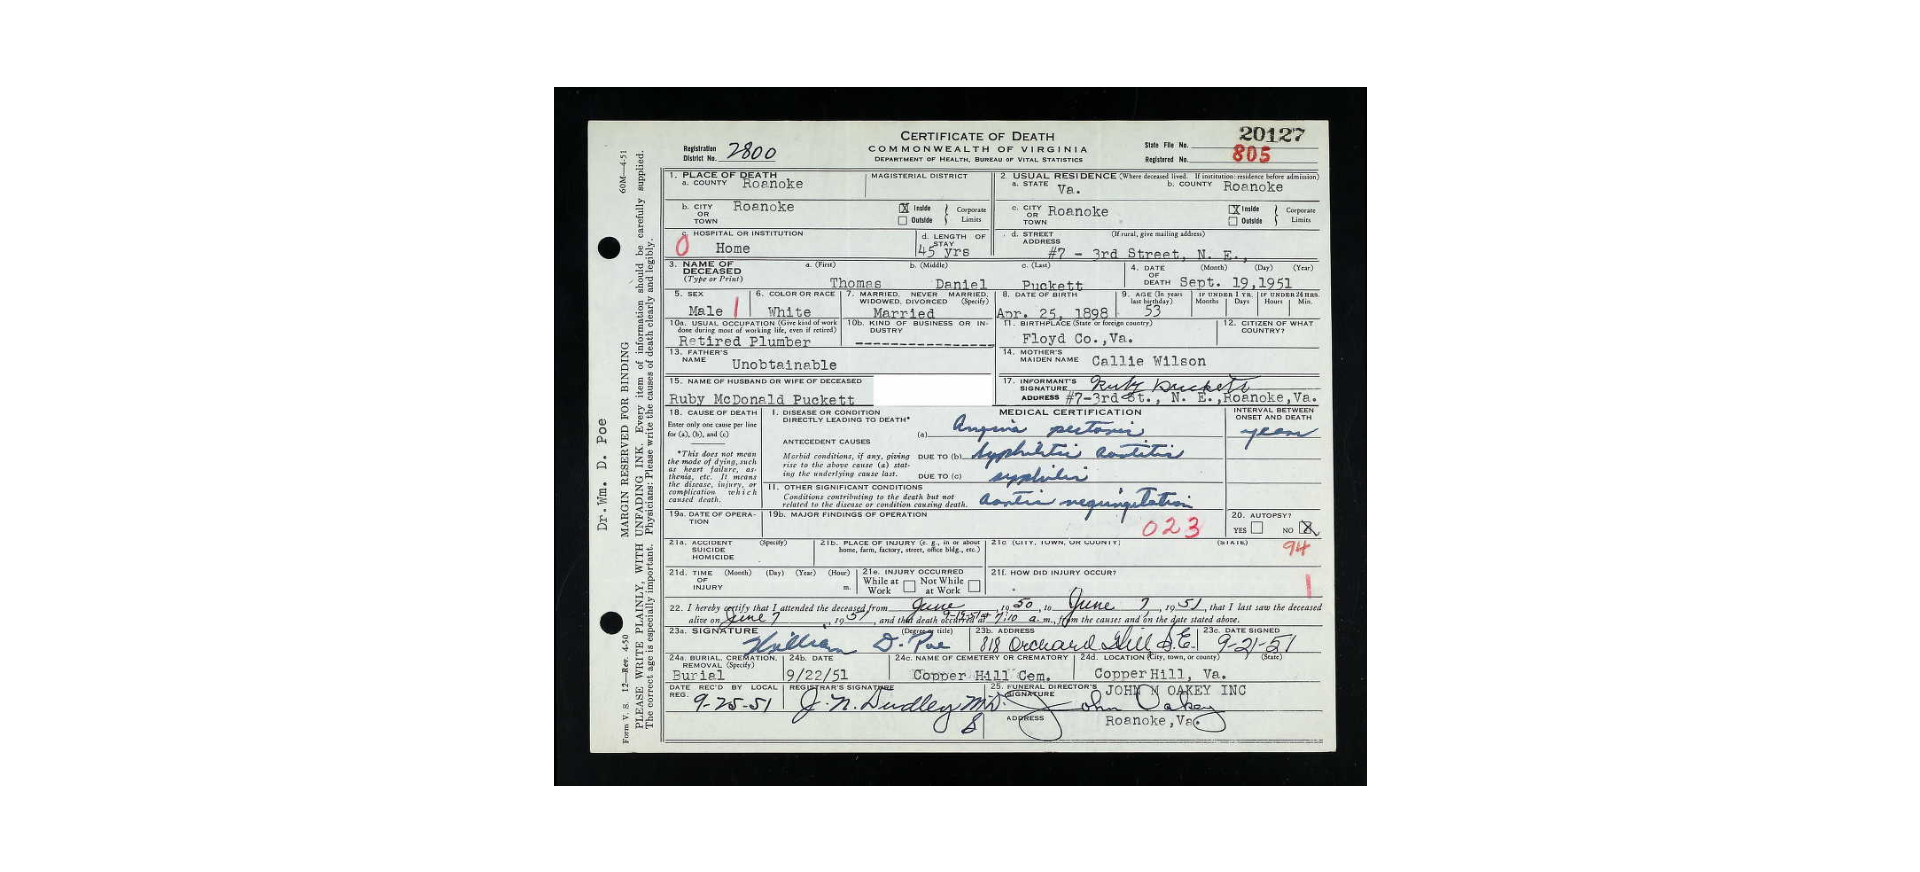 CERTIFICATE OF DEATH
COMMONWEALTH OF VIRGINIA
DEPARTMENT OF HEALTH, BUREAU OF VITAL STATISTICS
Registration District No. 2800
State File No. 20127
Registered No. 805
1. PLACE OF DEATH
a. COUNTY Roanoke
MAGISTERIAL DISTRICT
2. USUAL RESIDENCE (Where deceased lived. If institution: residence before admission)
a. STATE Va.
b. COUNTY Roanoke
b. CITY OR TOWN Roanoke
X Inside
Outside
Corporate Limits
c. CITY OR TOWN Roanoke
X Inside
Outside
Corporate Limits
c. HOSPITAL OR INSTITUTION
0 Home
d. LENGTH OF STAY
45 yrs
d. STREET ADDRESS (If rural, give mailing address)
#7 - 3rd Street, N. E.,
3. NAME OF DECEASED (Type or Print)
a. (First) Thomas
b. (Middle) Daniel
c. (Last) Puckett
4. DATE OF DEATH (Month) (Day) (Year)
Sept. 19,1951
5. SEX
Male 1
6. COLOR OR RACE
White
7. MARRIED, NEVER MARRIED, WIDOWED, DIVORCED (Specify)
Married
8. DATE OF BIRTH
Apr. 25, 1898
9. AGE (In years last birthday)
53
IF UNDER 1 YR. Months Days
IF UNDER 24 HRS. Hours Min.
10a. USUAL OCCUPATION (Give kind of work done during most of working life, even if retired)
Retired Plumber
10b. KIND OF BUSINESS OR INDUSTRY
11. BIRTHPLACE (State or foreign country)
Floyd Co.,Va.
12. CITIZEN OF WHAT COUNTRY?
13. FATHER'S NAME
Unobtainable
14. MOTHER'S MAIDEN NAME Callie Wilson
15. NAME OF HUSBAND OR WIFE OF DECEASED
Ruby McDonald Puckett
17. INFORMANT'S SIGNATURE Ruby Puckett
ADDRESS #7-3rd St., N. E.,Roanoke,Va.
18. CAUSE OF DEATH
Enter only one cause per line for (a), (b), and (c)
*This does not mean the mode of dying, such as heart failure, asthenia, etc. It means the disease, injury, or complication which caused death.
MEDICAL CERTIFICATION
INTERVAL BETWEEN ONSET AND DEATH
I. DISEASE OR CONDITION DIRECTLY LEADING TO DEATH*
(a) Angina pectoris
years
ANTECEDENT CAUSES
Morbid conditions, if any, giving rise to the above cause (a) stating the underlying cause last.
DUE TO (b) Syphilitic aortitis
DUE TO (c) syphilis
II. OTHER SIGNIFICANT CONDITIONS
Conditions contributing to the death but not related to the disease or condition causing death.
aortic regurgitation
19a. DATE OF OPERATION
19b. MAJOR FINDINGS OF OPERATION
023
20. AUTOPSY?
YES NO X
94
21a. ACCIDENT SUICIDE HOMICIDE (Specify)
21b. PLACE OF INJURY (e. g., in or about home, farm, factory, street, office bldg., etc.)
21c (CITY, TOWN, OR COUNTY) (STATE)
21d. TIME OF INJURY (Month) (Day) (Year) (Hour) m.
21e. INJURY OCCURRED
While at Work Not While at Work
21f. HOW DID INJURY OCCUR?
1
22. I hereby certify that I attended the deceased from June, 1950, to June 7, 1951, that I last saw the deceased
alive on June 7, 1951, and that death occurred at 9-19-51 at 7:10 a.m., from the causes and on the date stated above.
23a. SIGNATURE (Degree or title)
William D. Poe
23b. ADDRESS
818 Orchard Hill S.E.
23c. DATE SIGNED
9-21-51
24a. BURIAL, CREMATION, REMOVAL (Specify)
Burial
24b. DATE
9/22/51
24c. NAME OF CEMETERY OR CREMATORY
Copper Hill Cem.
24d. LOCATION (City, town, or county) (State)
Copper Hill, Va.
DATE REC'D BY LOCAL REG.
9-25-51
REGISTRAR'S SIGNATURE
J. N. Dudley M.D.
25. FUNERAL DIRECTOR'S SIGNATURE
JOHN M OAKEY INC
John Oakey
ADDRESS
Roanoke,Va.
Dr. Wm. D. Poe
Form V. S. 12—Rev. 4-50
MARGIN RESERVED FOR BINDING
60M—4-51
PLEASE WRITE PLAINLY, WITH UNFADING INK. Every item of information should be carefully supplied.
The correct age is especially important. Physicians: Please write the causes of death clearly and legibly.